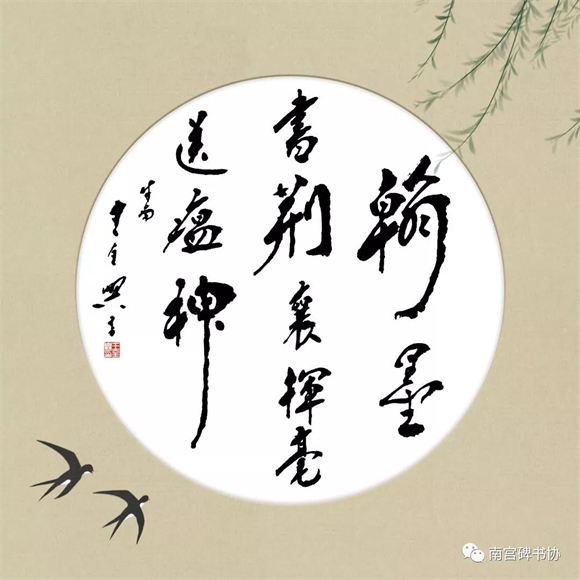 翰墨
書荆襄揮毫
送瘟神
南宫碑书协